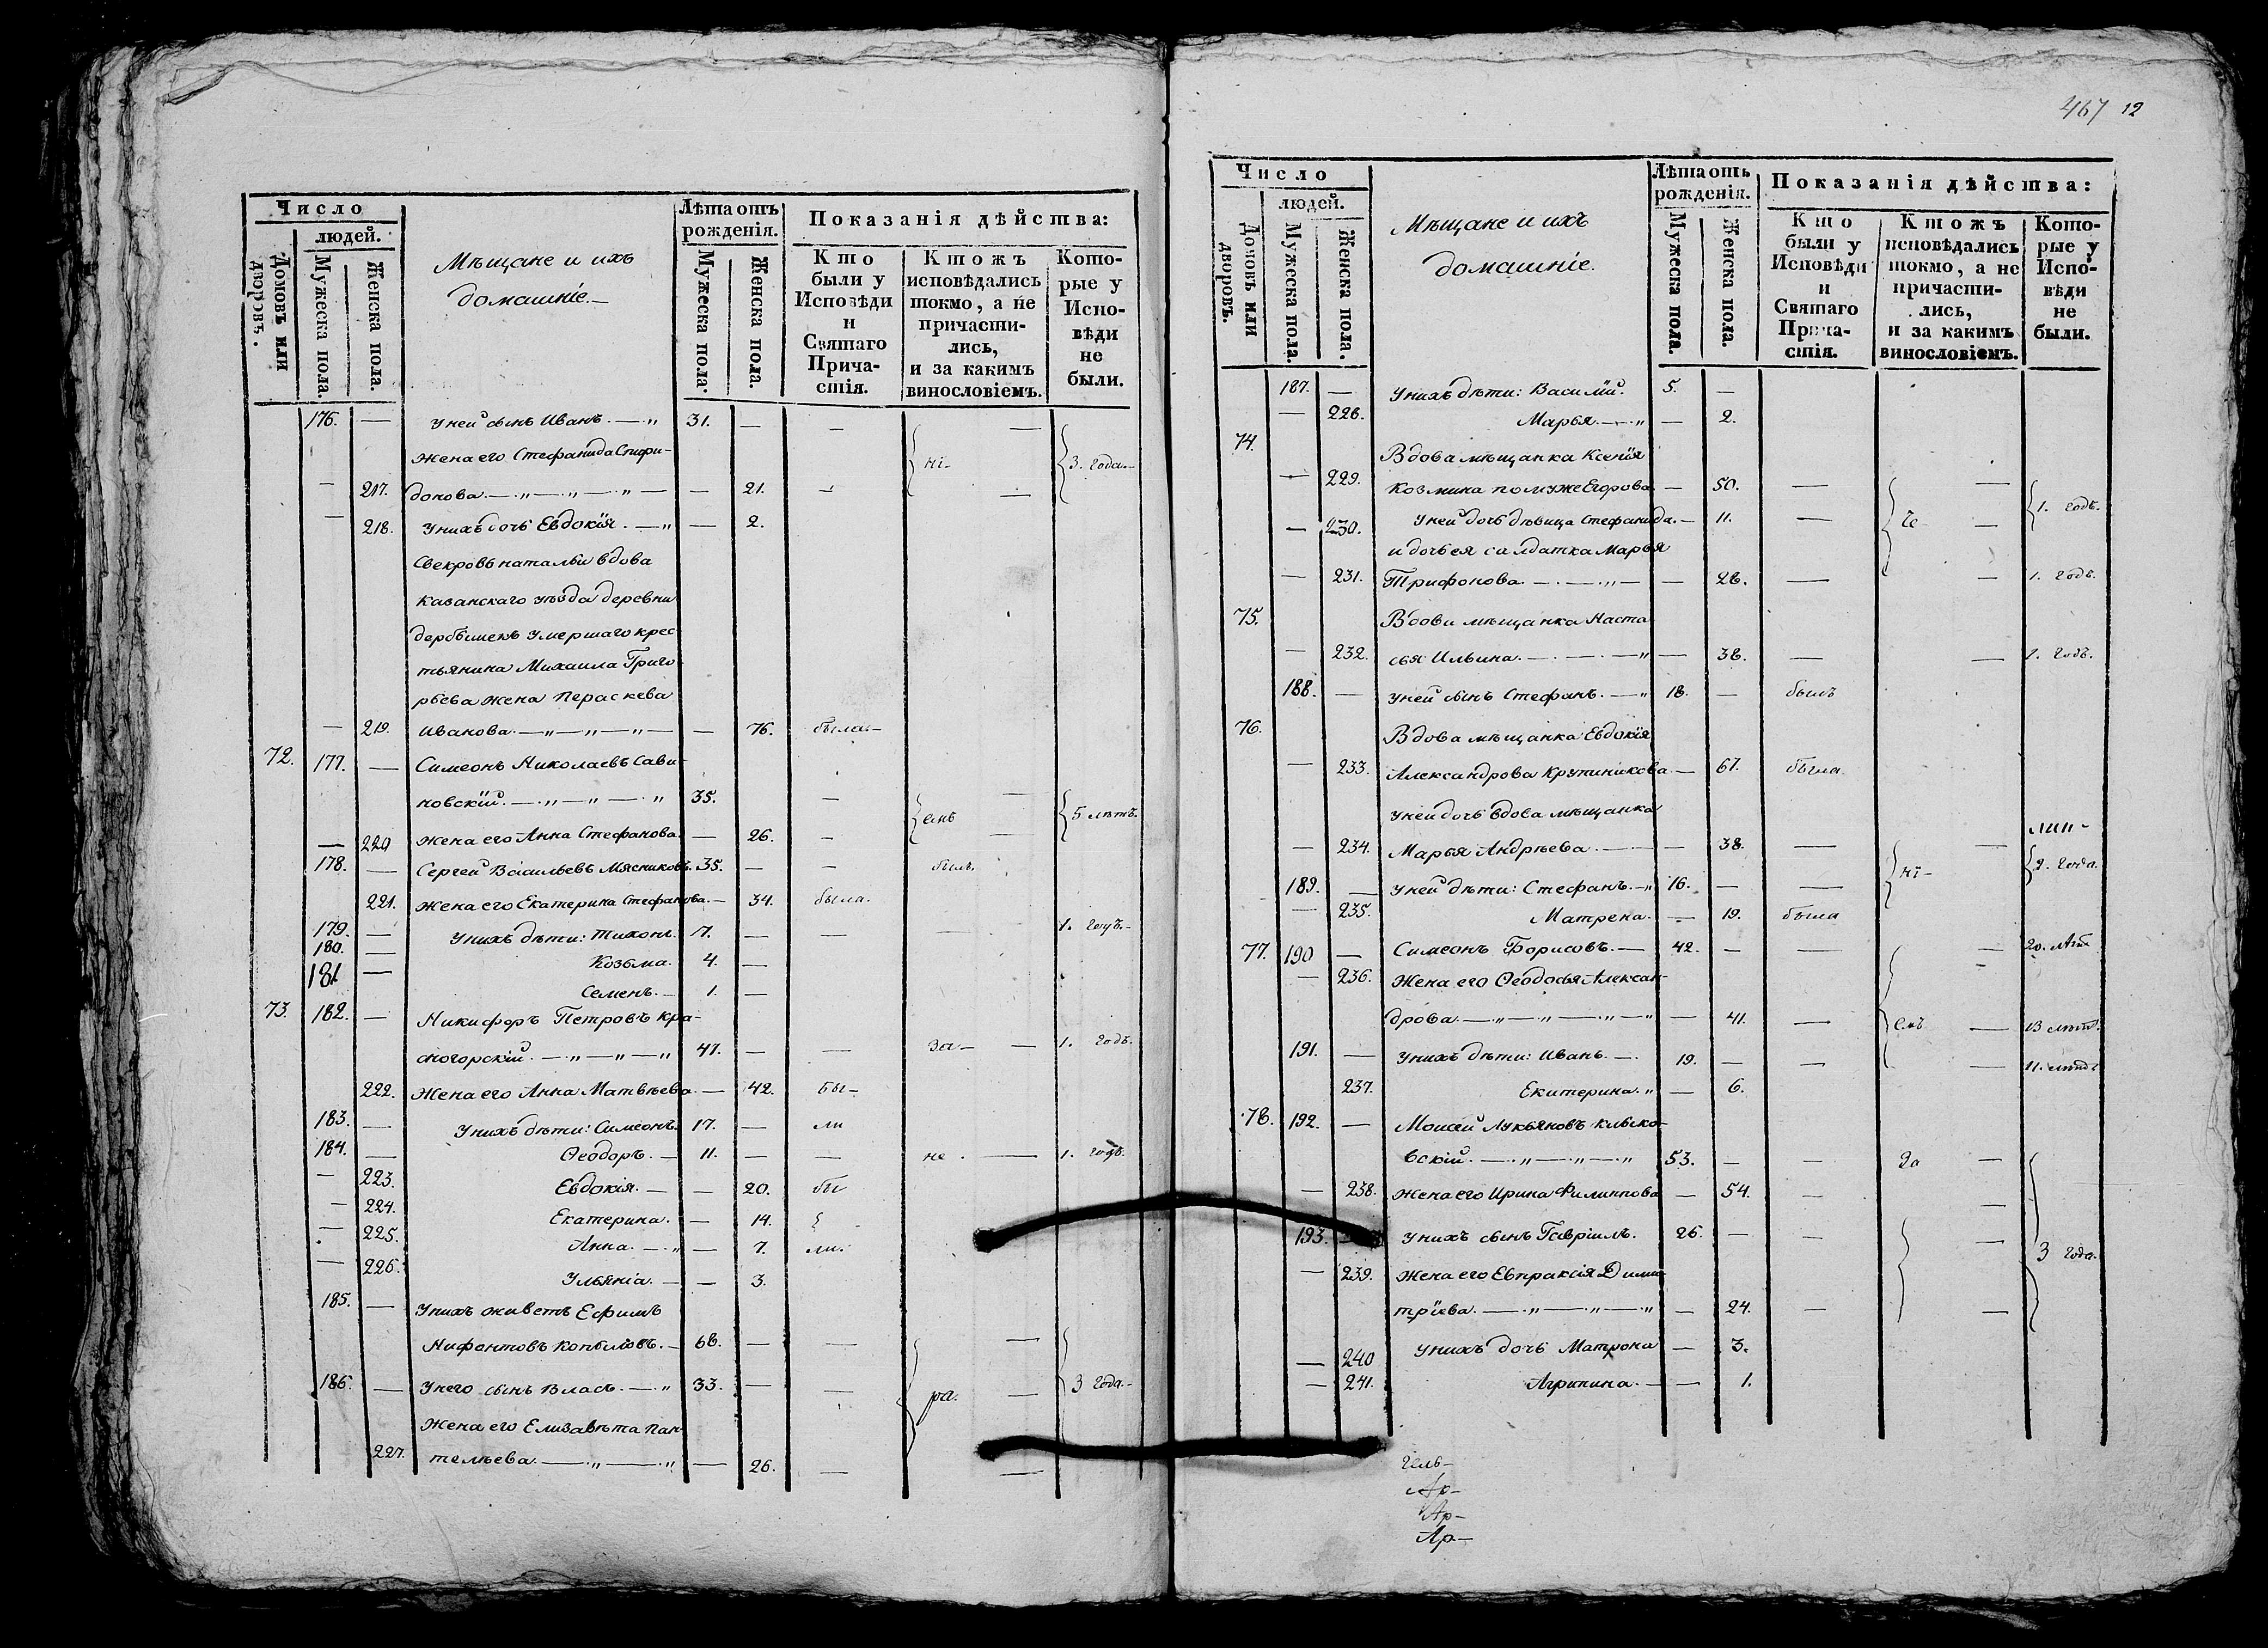 467 12
Число
людей.
Домовъ или дворовъ.
Мужеска пола.
Женска пола.
Мѣщане и ихъ
домашніе.—
Лѣта отъ
рожденія.
Мужеска пола.
Женска пола.
Показанія дѣйства:
Кто
были у
Исповѣди
и
Святаго
Прича-
стія.
Ктожъ
исповѣдались
токмо, а не
причасти-
лись,
и за какимъ
винословіемъ.
Кото-
рые у
Испо-
вѣди
не
были.
176. — У ней сынъ Иванъ. — 31. —
Жена его Стефанида Спири-
— 217. донова. — 21. — ні- 3. года.—
— 218. У нихъ дочь Евдокія. — 2.
Свекровь натальи вдова
Казанскаго уѣзда деревни
дербышекъ умершаго крес
тьянина Михаила Григо
рьева жена Пераскева
— 219. Иванова. — 76. была.—
72. 177. — Симеонъ Николаевъ Сави-
новскій. — 35. — емъ 5 лѣтъ.
— 220 Жена его Анна Стефанова. — 26. —
178. — Сергей Васильевъ Мясниковъ. 35. — — былъ.
221. Жена его Екатерина Стефанова. — 34. была.
179. — У нихъ дѣти: Тихонъ. 7. — — 1. годъ.—
180. — Козьма. 4. —
181 — Семенъ. — 1. —
73. 182. — Никифоръ Петровъ Кра-
сногорскій. — 47. — — за — 1. годъ.
222. Жена его Анна Матвѣева. — 42. бы-
183. — У нихъ дѣти: Симеонъ. 17. — ли
184. — Ѳеодоръ. — 11. — — не. — 1. годъ.
— 223. Евдокія. — — 20. бы
— 224. Екатерина. — 14.
— 225. Анна. — 7. ли.
— 226. Ульянія. — — 3.
185. — У нихъ живетъ Ефимъ
Нифонтовъ Копыловъ. — 68. — —
186. — У него сынъ Власъ. — 33. — — ра. — 3 года.—
Жена его Елизавѣта Пан-
227. телѣева. — 26. —
Число
людей.
Домовъ или дворовъ.
Мужеска пола.
Женска пола.
Мѣщане и ихъ
домашніе.
Лѣта отъ
рожденія.
Мужеска пола.
Женска пола.
Показанія дѣйства:
Кто
были у
Исповѣди
и
Святаго
Прича-
стія.
Ктожъ
исповѣдались
токмо, а не
причасти-
лись,
и за какимъ
винословіемъ.
Кото-
рые у
Испо-
вѣди
не
были.
187. — У нихъ дѣти: Василій. 5. —
— 228. Марья. — 2.
74. Вдова мѣщанка Ксенія
— 229. Козмина по мужеЕгорова — 50. —
— 230. У ней дочь дѣвица Стефанида. — 11. — че — 1. годъ.
и дочь ея салдатка Марья
— 231. Трифонова. — 28. — — 1. годъ.
75. Вдова мѣщанка Наста
— 232. сья Ильина. — 38. — — 1. годъ.
188. — У ней сынъ Стефанъ. — 18. — былъ
76. Вдова мѣщанка Евдокія
— 233. Александрова Крупиникова. — 67. была.
У ней дочь вдова мѣщанка
— 234. Марья Андрѣева. — 38. —
189. — У ней дѣти: Стефанъ. — 16. — — ні- 2. года.
— 235. Матрена. — 19. была
77. 190 — Симеонъ Борисовъ. — 42. — — 20. лѣтъ
— 236. Жена его Ѳеодосья Алексан-
дрова. — 41. — емъ — 13 лѣтъ.
191. — У нихъ дѣти: Иванъ. — 19. — — 11. лѣтъ
237. Екатерина. — 6.
78. 192. — Моисей Лукьяновъ
вскій. — 53. — — за —
— 238. Жена его Ирина Филиппова — 54. —
193. — У нихъ сынъ Гавріилъ. 26. — — 3 года.
— 239. Жена его Евпраксія Дими-
тріева. — 24. —
— 240 У нихъ дочь Матрона — 3.
— 241. Агрипина. — 1.
гель-
Ар-
Ар-
Ар-